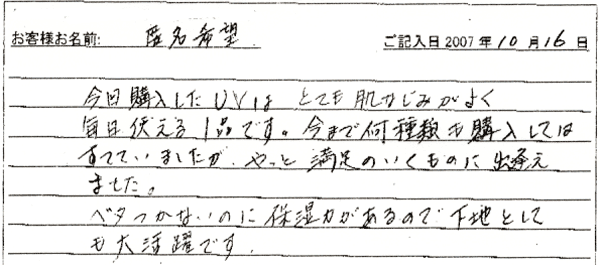 お客様お名前: 匿名希望. ご記入日 2007年 10月 16日
今回購入したUVは とても肌なじみがよく
毎日使える1品です。今まで何種類も購入しては
すてていましたが、やっと満足のいくものに出逢え
ました。
ベタつかないのに保湿力があるので下地として
も大活躍です.